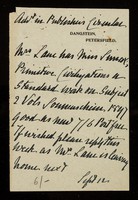 Advt in Publishers Circular
DANGSTEIN,
PETERSFIELD.
Mrs Lane has Miss Simcox,
Primitive Civilizations a
Standard work on Subject
2 Vols Sonnenschein 1897
Good as new 7/6 Post free
If wished please reply this
week as Mrs Lane is leaving
home next
6/- Sept 12